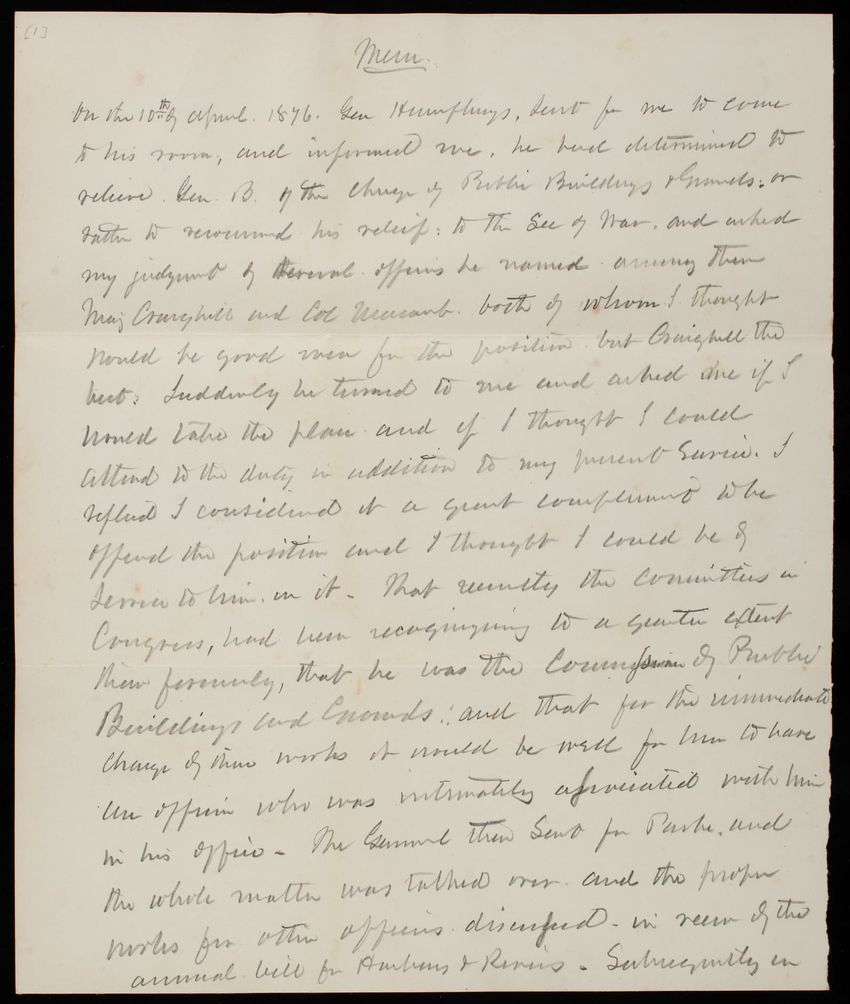 [1]
Mem.
On the 10th of April. 1876. Gen Humphreys, sent for me to come
to his room, and informed me, he had determined to
relieve Gen. B. of the charge of Public Buildings & Grounds: or
rather to recommend his relief: to the Sec of War. and asked
my judgment of several officers he named among them
Maj Craighill and Col Macomb. both of whom I thought
would be good men for the position but Craighill the
best: Suddenly he turned to me and asked me if I
would take the place and if I thought I could
attend to the duty in addition to my present Service. I
replied I considered it a great compliment to be
offered the position and I thought I could be of
service to him in it - That recently the Committees in
Congress, had been recognizing to a greater extent
than formerly, that he was the Commissioner of Public
Buildings and Grounds: and that for the immediate
charge of these works it would be well for him to have
an officer who was intimately associated with him
in his office - The General then Sent for Parke, and
the whole matter was talked over and the proper
works for other officers discussed - in view of the
annual bill for Harbors & Rivers - Subsequently in